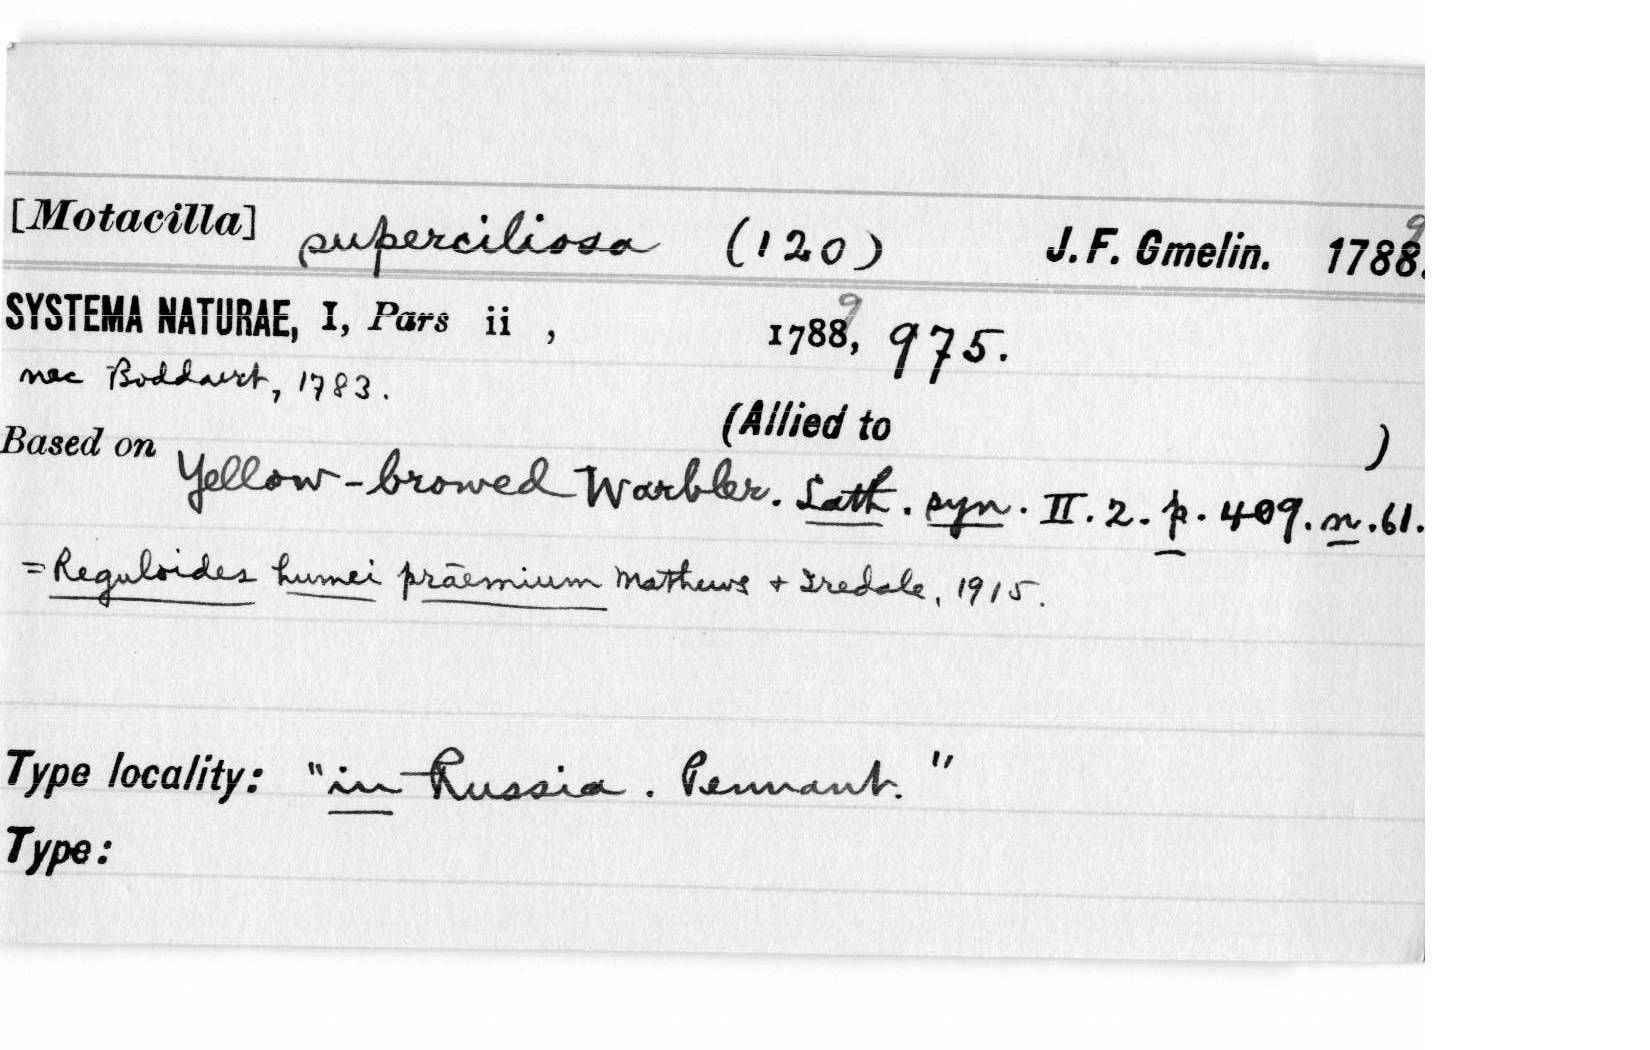 [Motacilla] superciliosa (120) J. F. Gmelin. 1788. 9
SYSTEMA NATURAE, I, Pars ii , 1788, 9 975.
nec Boddaert, 1783.
(Allied to )
Based on Yellow-browed Warbler. Lath. syn. II. 2. p. 409. n. 61.
=Reguloides humei præmium Mathews + Iredale, 1915.
Type locality: "in Russia. Pennant."
Type: